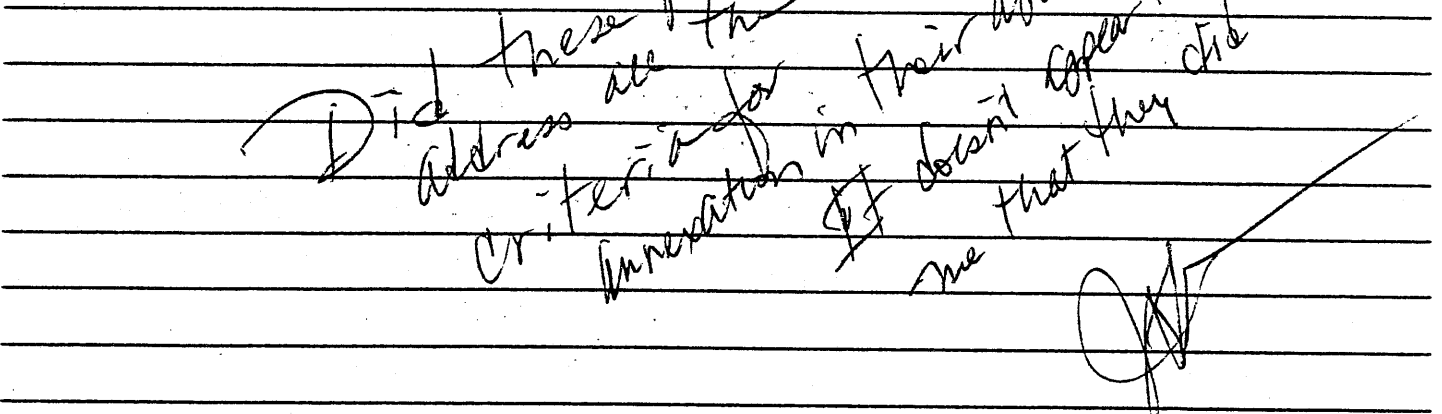 Did these
address all the
criteria for
annexation in their
It doesn't appear
me that they did